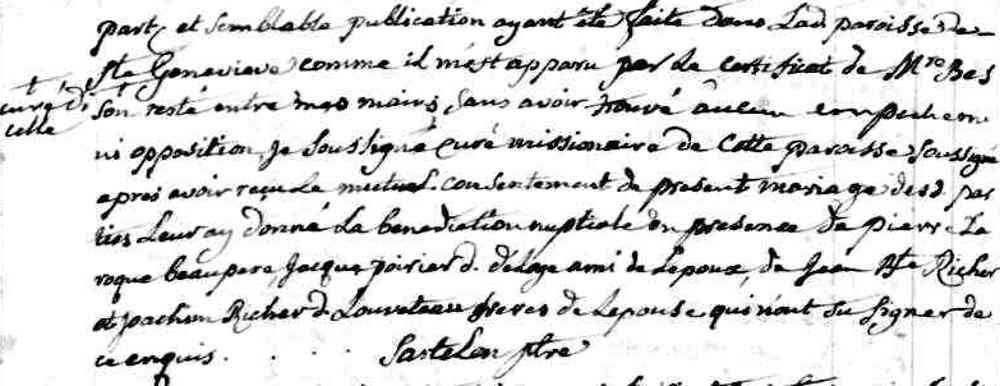 part, et semblable publication ayant été faite dans Lad paroisse de
Ste Genevieve comme il m'est apparu par Le certificat de Mre Bes
curé d'i
celle
son resté entre mes mains, sans avoir trouvé aucun empechem
ni opposition, Je soussigné curé missionaire de Cette paroisse soussigné
apres avoir reçu Le mutuel consentement de present mariage desd. par
ties Leur ay donné La benediction nuptiale en presence de pierre La
roque beaupere, Jacque poirier d. deloge ami de Lepoux, de Jean Bte Richer
et Joachim Richer d. Louveteau freres de Lepouse qui n'ont su signer de
ce enquis. . . . Sartelon ptre